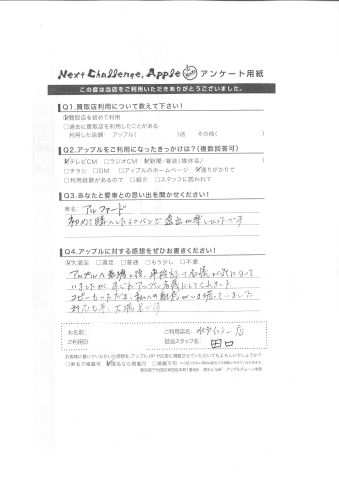 Next Challenge, Apple アンケート用紙
この度は当店をご利用いただきありがとうございました。
Q1.買取店利用について教えて下さい!
☑買取店を初めて利用
□過去に買取店を利用したことがある
利用した店舗: アップル( )店 その他( )
Q2.アップルをご利用になったきっかけは?(複数回答可)
☑テレビCM □ラジオCM ☑新聞・雑誌(媒体名) ( )
□チラシ □DM □アップルのホームページ ☑通りがかりで
□利用経験があるので □紹介 □スタッフに誘われて
Q3.あなたと愛車との思い出を聞かせください!
車名: アルファード
初めて購入したミニバンで
です
Q4.アップルに対する感想をぜひお書きください!
☑大満足 □満足 □普通 □もう少し □不満
アップルへ
車検証の名義が気になって
いましたが、すぐにアップル名義にしてくれました
コピーもいただき、私への配慮が
いました
対応も早く大満足です
お名前: ご利用店名: 水戸 店
ご利用日 担当スタッフ名: 田口
お客様に書いていただいた感想を、アップルHPや広告に掲載させていただいてもよろしいでしょうか?
□実名で掲載可 ☑匿名なら掲載可 □掲載不可